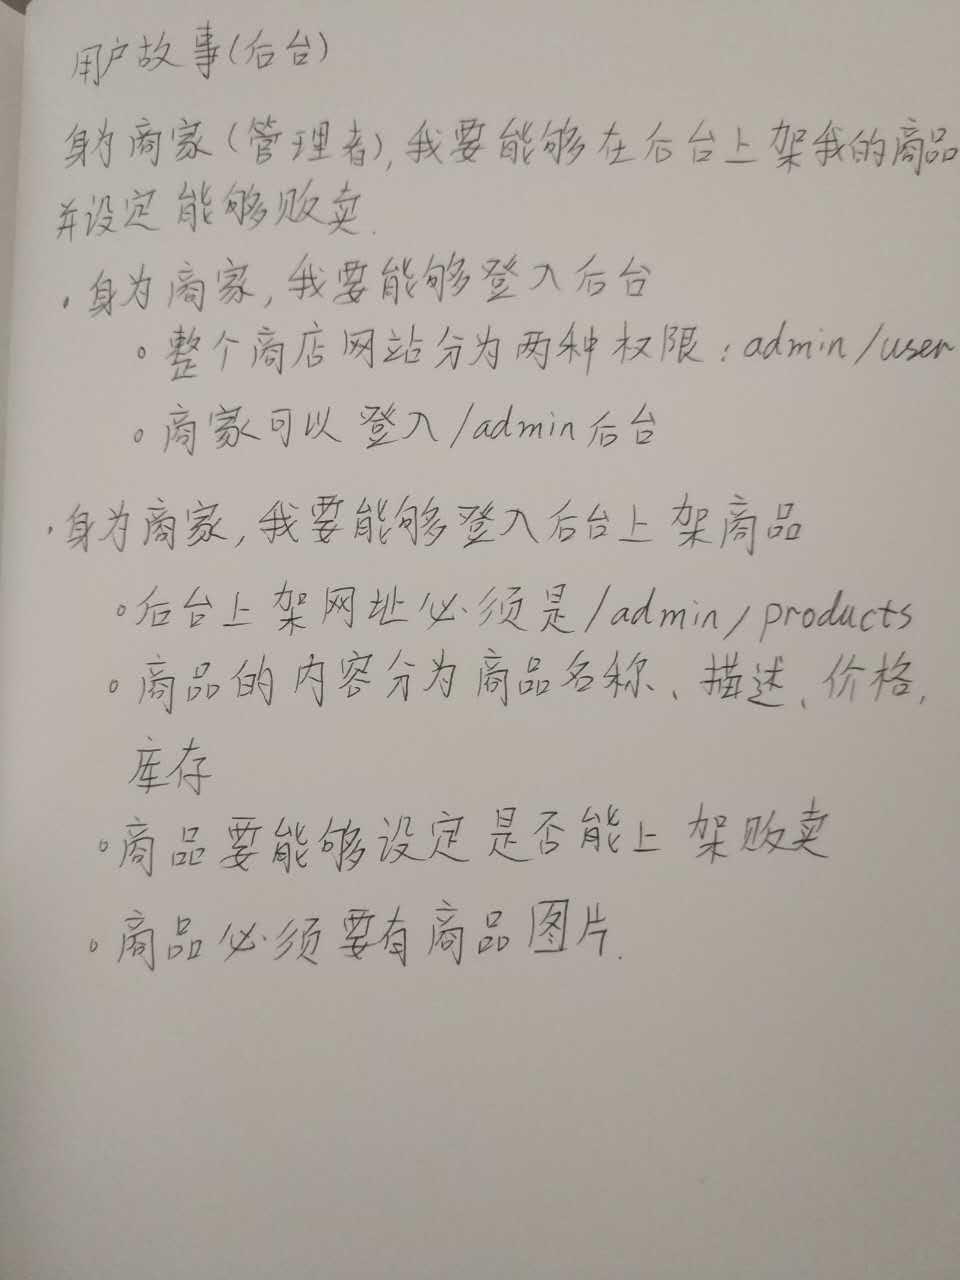 用户故事(后台)
身为商家(管理者),我要能够在后台上架我的商品
并设定能够贩卖.
·身为商家,我要能够登入后台
。整个商店网站分为两种权限:admin/user
。商家可以登入/admin后台
·身为商家,我要能够登入后台上架商品
。后台上架网址必须是/admin/products
。商品的内容分为商品名称、描述、价格,
库存
。商品要能够设定是否能上架贩卖
。商品必须要有商品图片.